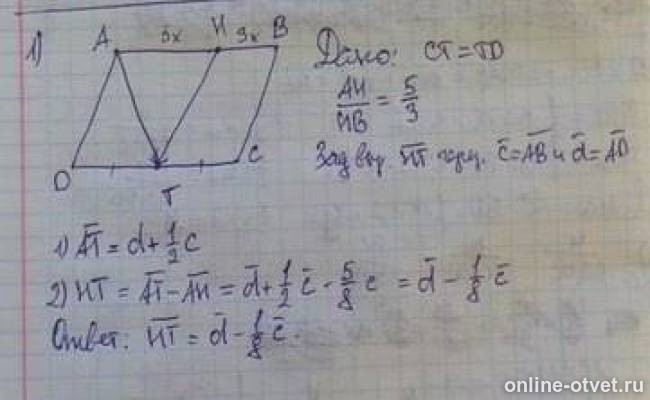 1)
A 5x H 3x B
D T C
Дано: CT = TD
AH/HB = 5/3
HT c̄ = AB и d̄ = AD
1) AT = d + 1/2 c
2) HT = AT - AH = d̄ + 1/2 c̄ - 5/8 c = d̄ - 1/8 c̄
Ответ: HT = d̄ - 1/8 c̄.
online-otvet.ru